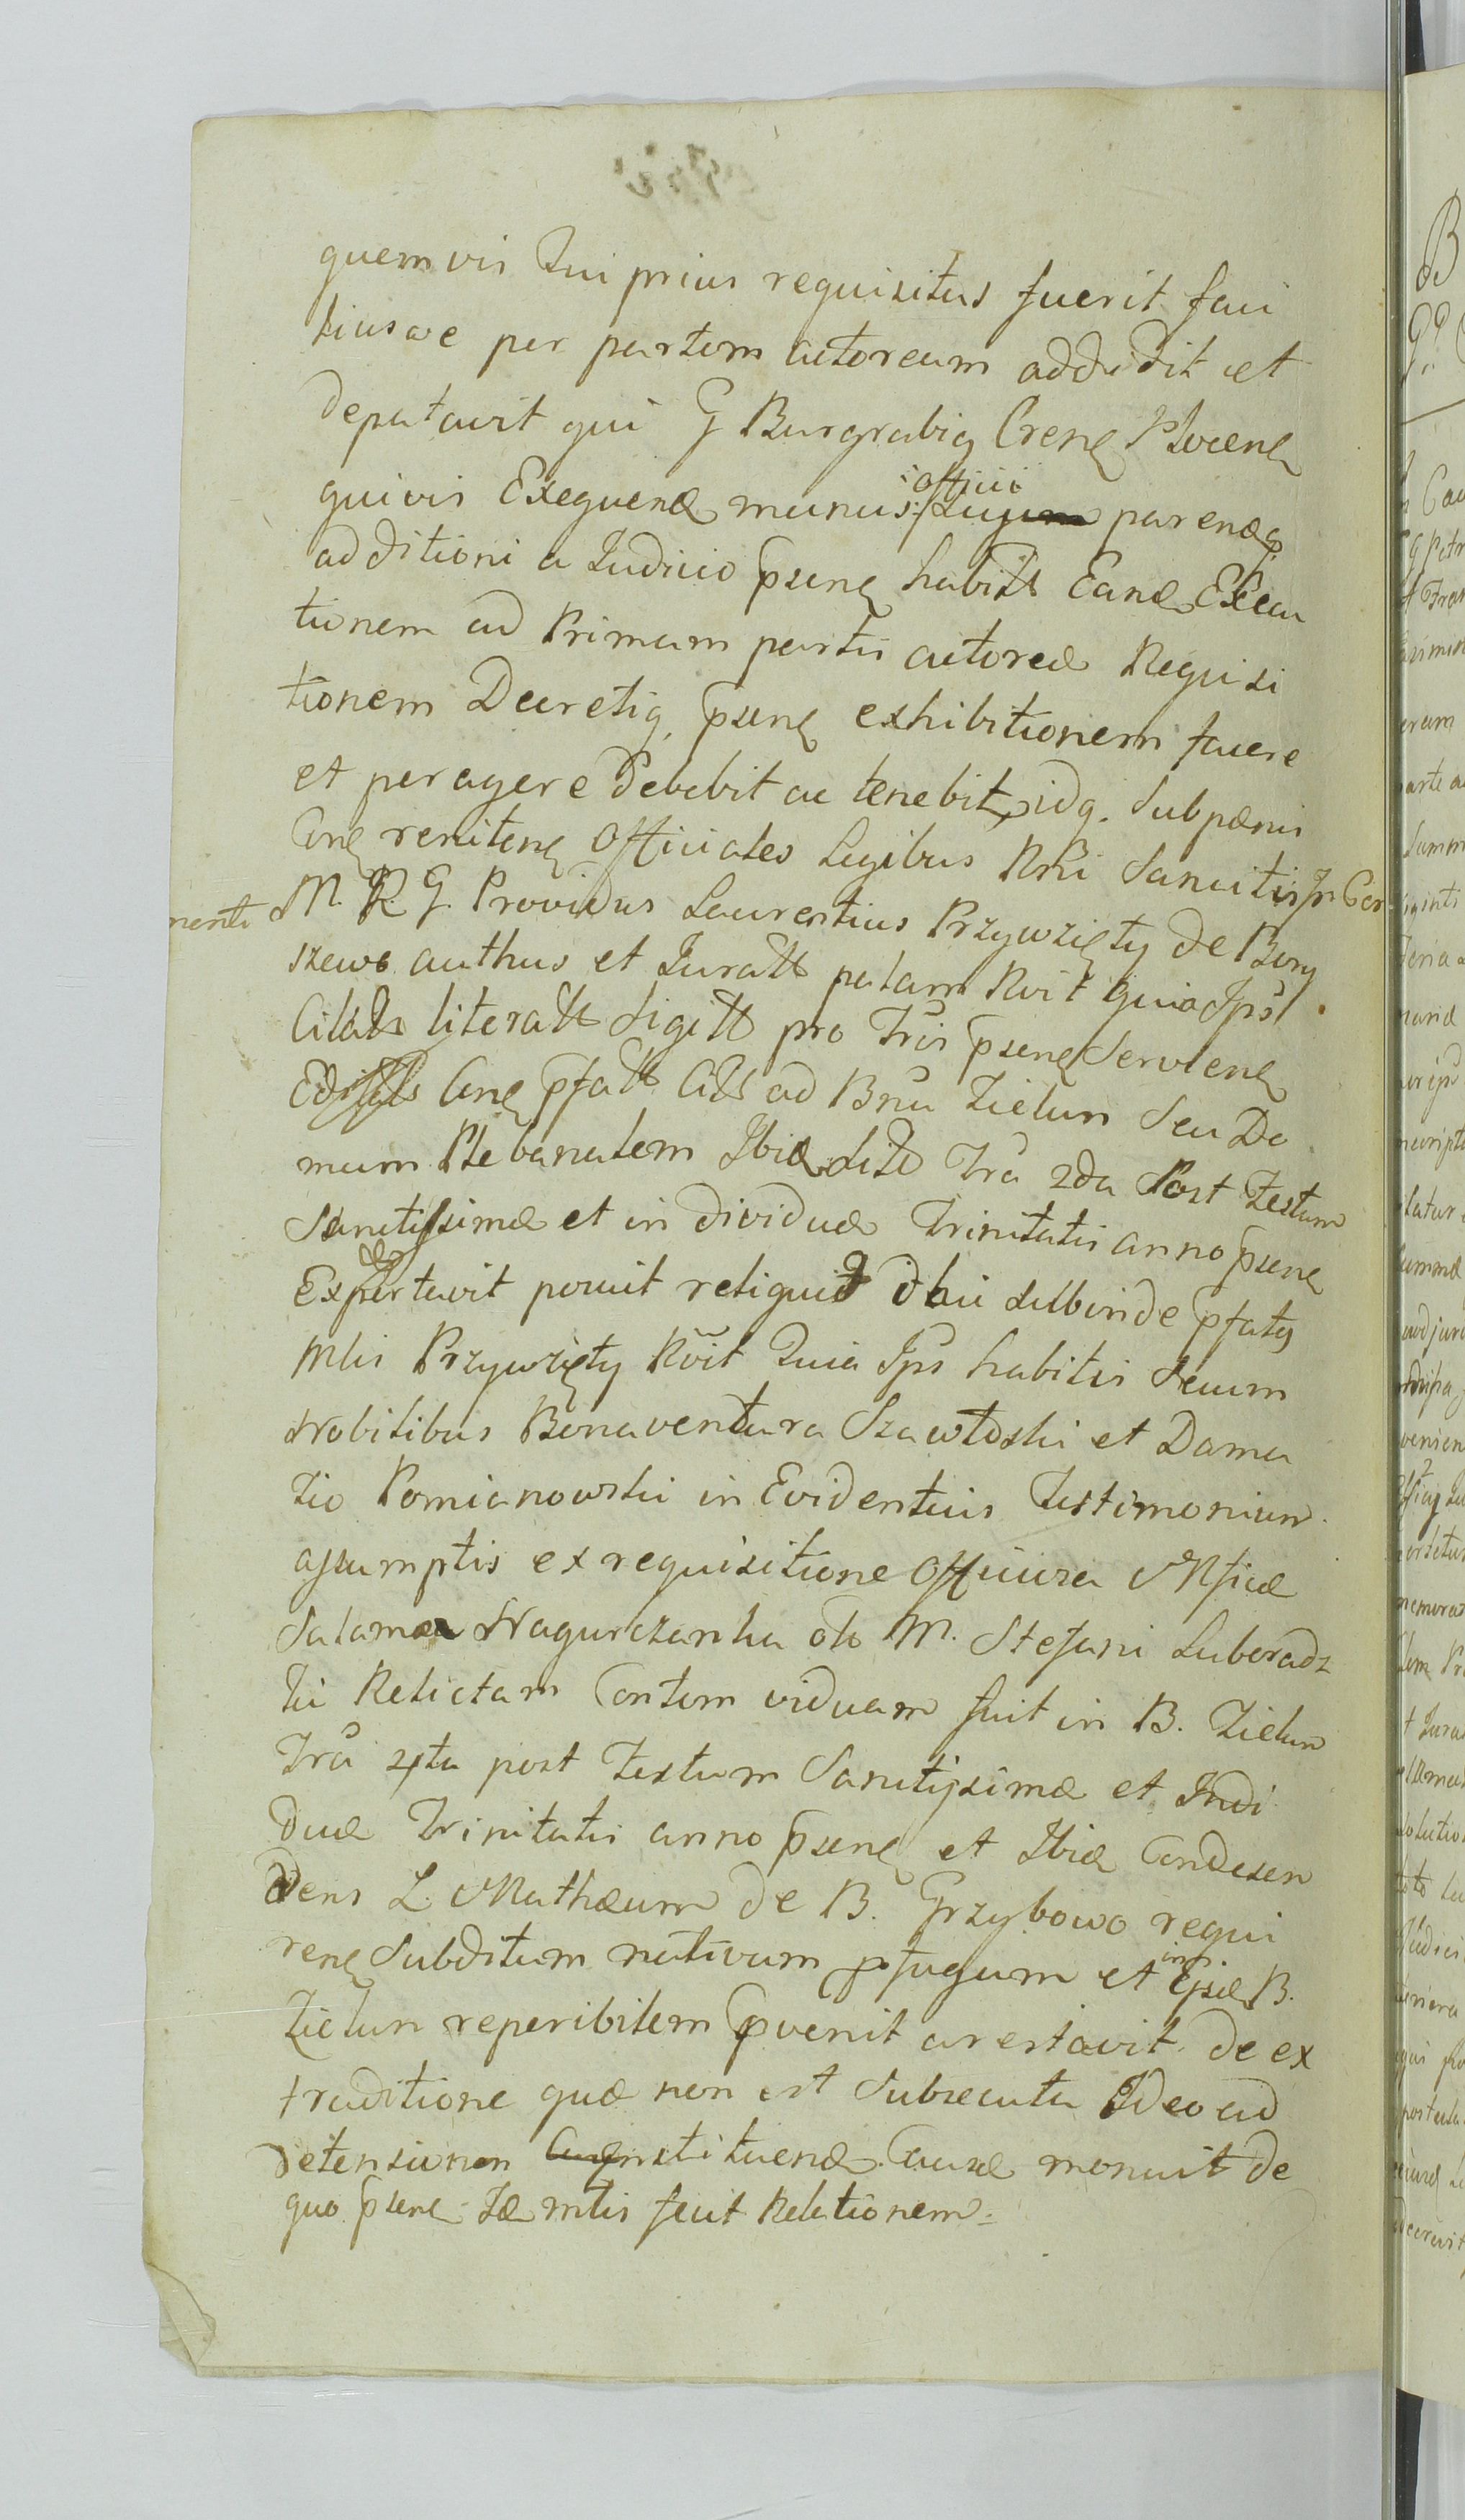 quemvis Qui prius requisitus fuerit faci
liusve per partem actoream addidit et
deputavit qui G Burgrabiq Crenę Plocenę
quivis Exequend munus officii parendq
additioni a Judicio psenę habitt Eand Execu
tionem ad Primam partis actoreæ Requisi
tionem Decretiq psenę exhibitionem facere
et peragere debebit ac tenebit, idq. Subpænis
Cong renitenę Officiales Legibus Rni Sancitis
M. R. G. Providus Laurentius Przywzięty de Bory
szewo authus et Juratt palam Rvit Quia Ips
literatt Sigitt pro Tris psenę Servienę
Conę pfatt ad Bna Zielun Seu Do
mum Plebanalem Ibid Sitt Fra 2da Post Festum
Sanctissimæ et individuæ Trinitatis anno psenę
Exportavit posuit reliquit subinde pfatq
Mlis Przywzięty Rvit Quia Ips habitis Secum
Nobilibus Bonaventura Szawłoski et Dama
zio Pomianowski in Evidentius Testimonium
assumptis ex requisitione
Nagurczanka M. Stefani Luboradz
ki Relictam viduam fuit in B. Zielun
Fra 4ta post Festum Sanctissimæ et Indi
duæ Trinitatis anno psenę et Ibid Condesen
dens L. Mathæum de B. Grzybowo requi
renę Subditum nativum pfugum et in B.
Zielun reperibilem pvenit arestavit de ex
traditione quæ non est Subsecuta Ideo ad
detensionem Causæ monuit de
quo psene Id mlis fecit Relationem.